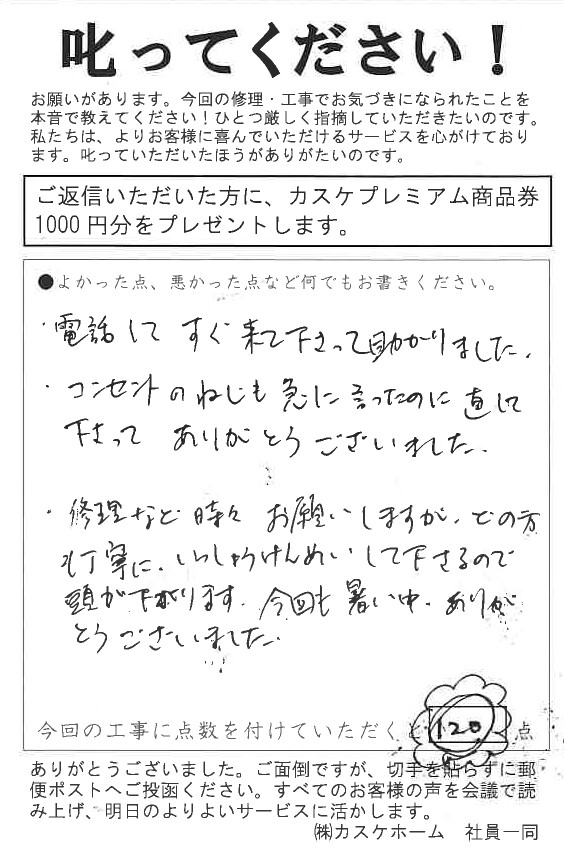 叱ってください！
お願いがあります。今回の修理・工事でお気づきになられたことを
本音で教えてください！ひとつ厳しく指摘していただきたいのです。
私たちは、よりお客様に喜んでいただけるサービスを心がけており
ます。叱っていただいたほうがありがたいのです。
ご返信いただいた方に、カスケプレミアム商品券
1000円分をプレゼントします。
●よかった点、悪かった点など何でもお書きください。
・電話して すぐ 来て下さって助かりました。
・コンセントのねじも 急に 言ったのに 直して
下さって ありがとうございました。
・修理など 時々 お願いしますが、どの方
も丁寧に、いっしょうけんめいして下さるので
頭が下がります。今回も 暑い中、ありが
とうございました。
今回の工事に点数を付けていただくと 120 点
ありがとうございました。ご面倒ですが、切手を貼らずに郵
便ポストへご投函ください。すべてのお客様の声を会議で読
み上げ、明日のよりよいサービスに活かします。
㈱カスケホーム 社員一同